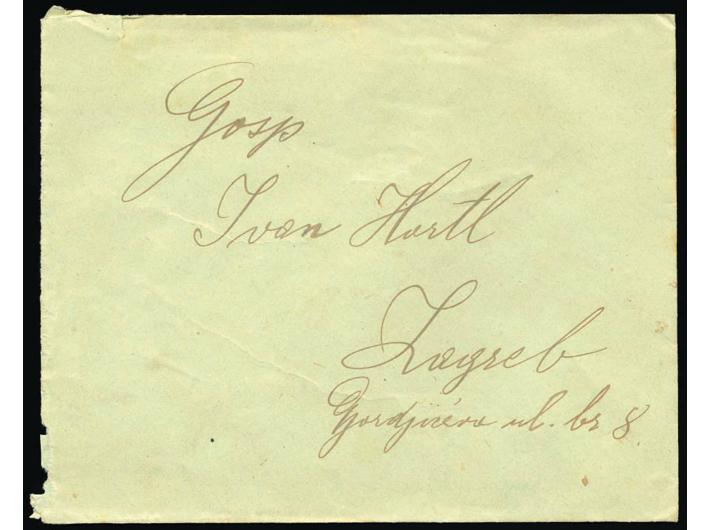 Gosp
Ivan Hortl
Zagreb
Gjordjićeva ul. br 8.